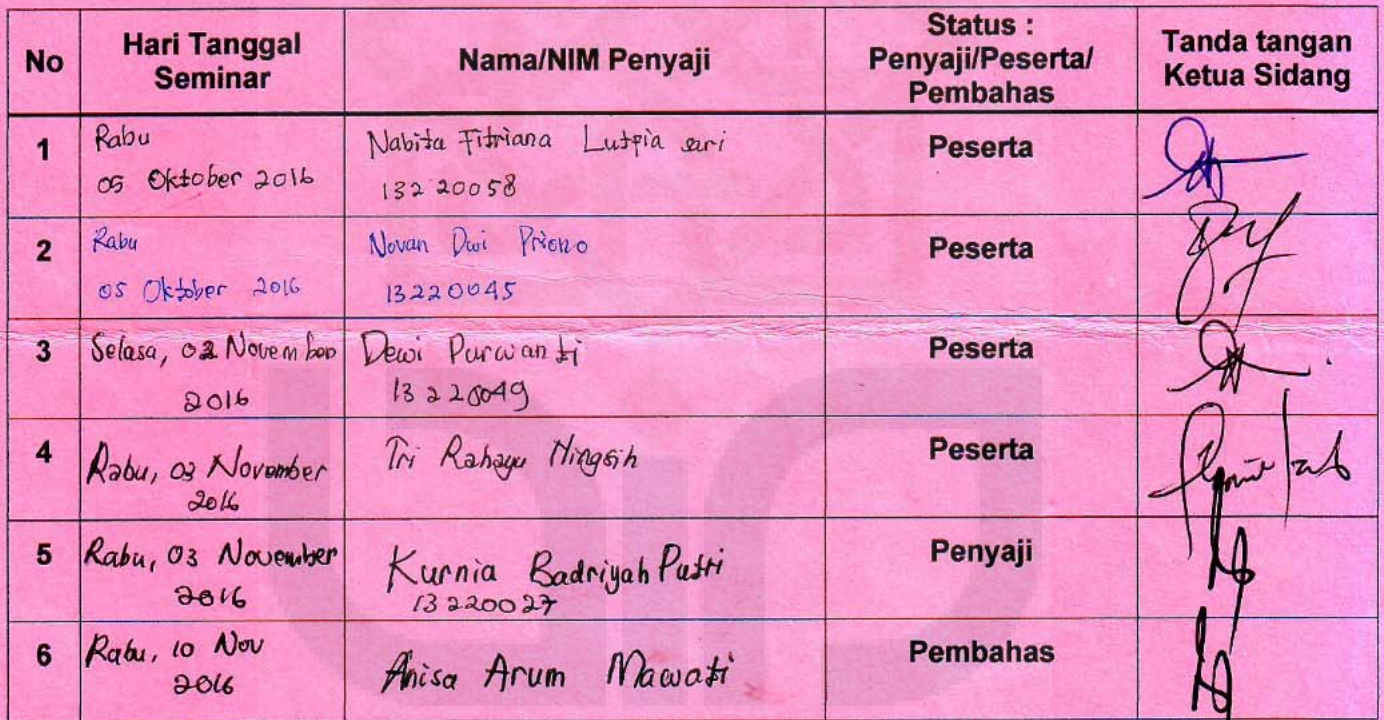 No
Hari Tanggal
Seminar
Nama/NIM Penyaji
Status :
Penyaji/Peserta/
Pembahas
Tanda tangan
Ketua Sidang
1
Rabu
05 Oktober 2016
Nabita Fitriana Lutfia sari
13220058
Peserta
2
Rabu
05 Oktober 2016
Novan Dwi Priono
13220045
Peserta
3
Selasa, 02 November
2016
Dewi Purwanti
13220049
Peserta
4
Rabu, 03 November
2016
Tri Rahayu Ningsih
Peserta
5
Rabu, 03 November
2016
Kurnia Badriyah Putri
13220027
Penyaji
6
Rabu, 10 Nov
2016
Anisa Arum Mawati
Pembahas